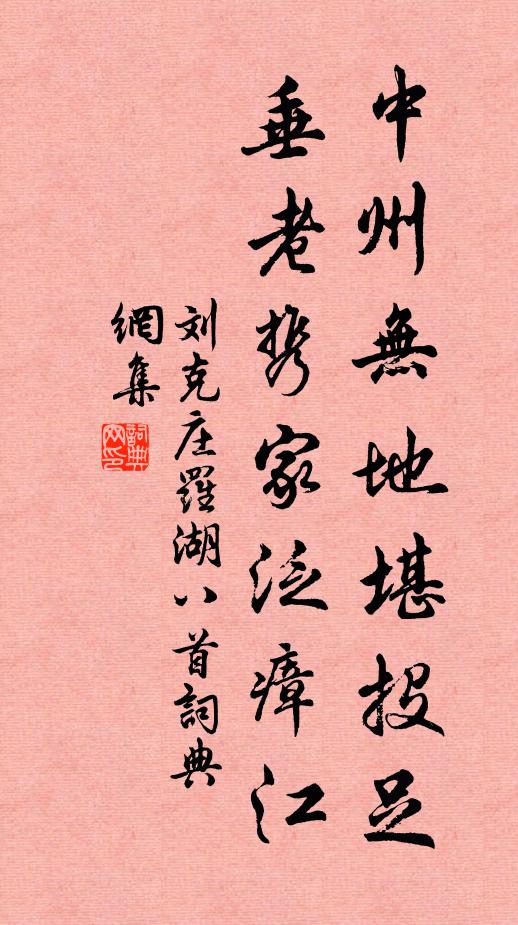 中州無地堪投足
垂老携家泛瘴江
刘克庄羅湖八首詞典
網集
詞典
网印